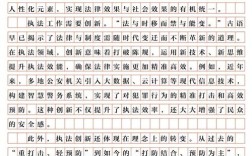 人性化元素，实现法律效果与社会效果的有机统一。
执法工作需要创新。“法与时移而禁与能变。”古语
早已揭示了法律与制度应随时代变迁而不断革新的道理。
在执法领域，创新意味着打破陈规，运用新技术、新思维
提升执法效能，确保法律实施的准确性和时效性。例如，近
年来，多地公安机关引入大数据、云计算等现代信息技术，
构建智慧警务系统，实现了对违法犯罪行为的精准打击和高效
预防。这种创新不仅提升了执法效率，还大大增强了民众
的安全感。
此外，执法创新还体现在理念上的转变。从过去的
“重打击、轻预防”到如今的“打防结合、预防为主”，